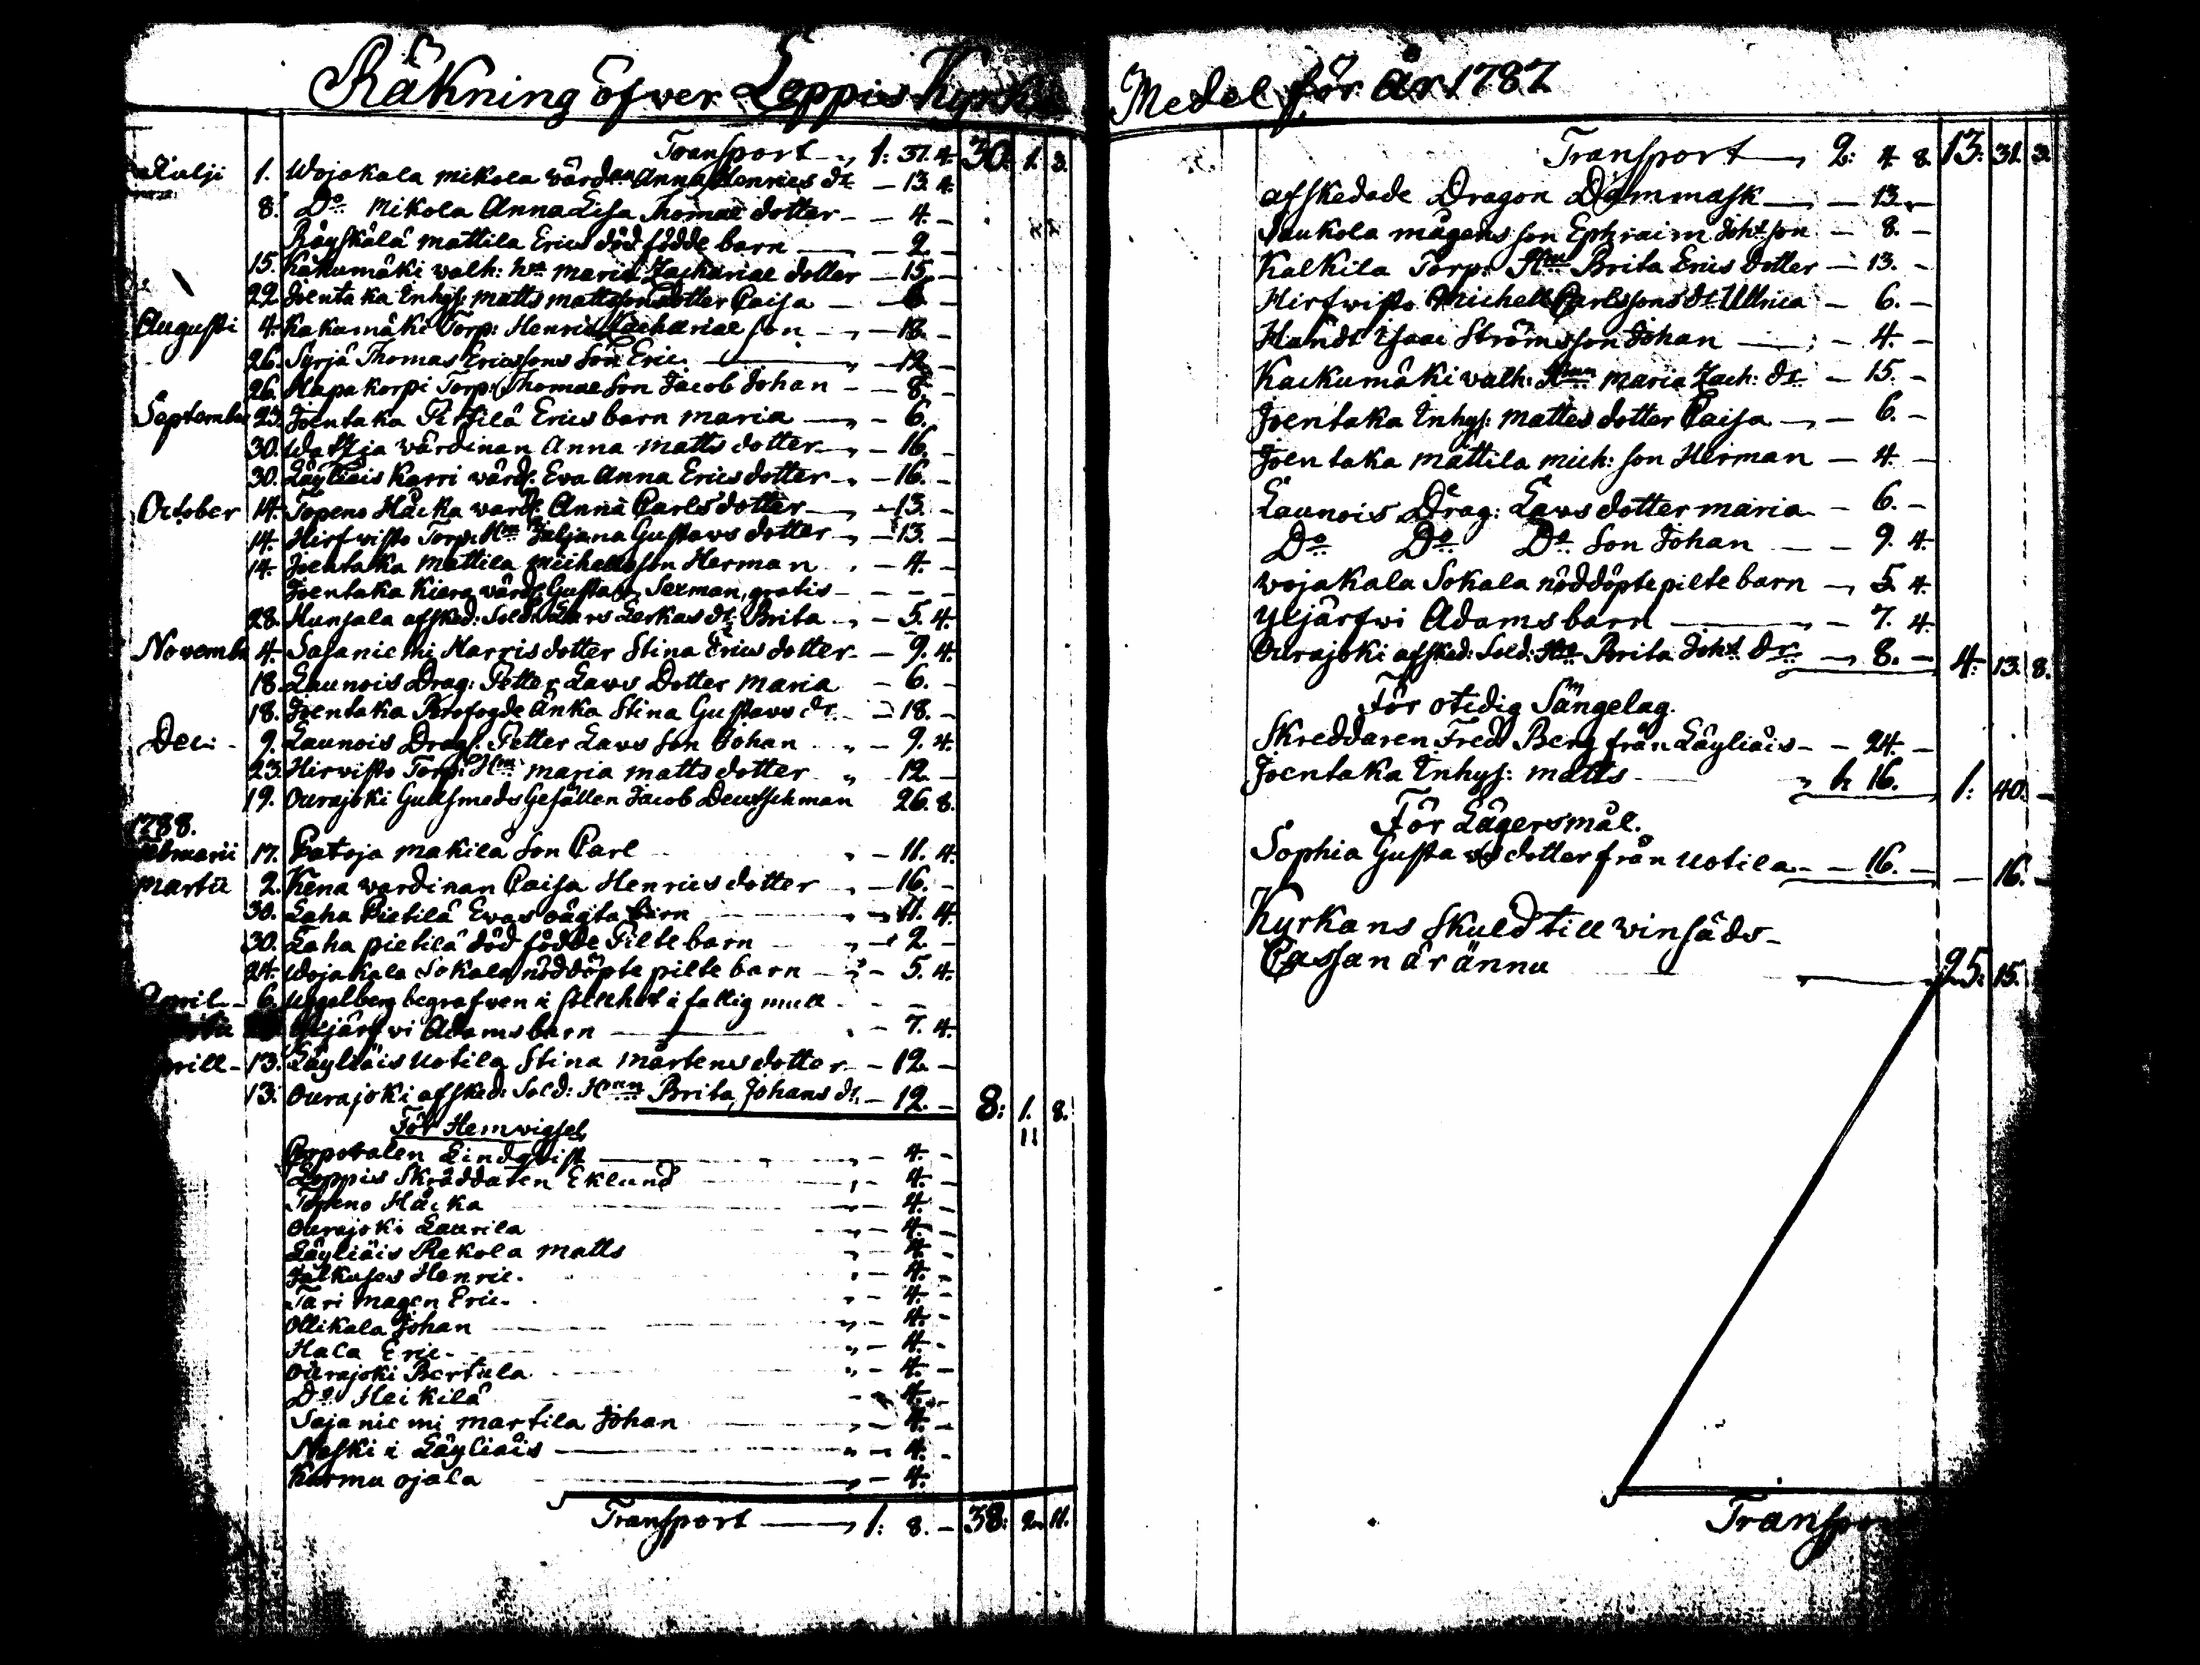 Räkning öfver Loppis Kyrko
Transport 1: 37. 4. 30. 1. 3.
Julji 1. Wojakala Mikola värd:an Anna Henrics dr. - 13. 4.
8. Do Mikola Anna Lisa Thomae dotter - 4. -
Räyskälä Mattila Erics död födde barn - 2. -
15. Kakumäki valh: hn Maria Zachariae dotter - 15. -
22. Joentaka Inhys: Matts Mattssons dotter Caisa -
Augusti 4. Kakumäki Torp: Henric Zachariae son - 12. -
26. Syrjä Thomas Ericssons Son Eric. - 12. -
26. Hapakorpi Torp: Thomae Son Jacob Johan - 8. -
September 23. Joentaka Pietilä Erics barn Maria - 6.
30. värdinan Anna Matts dotter - 16. -
30. Läyliäis Karri värds: Eva Anna Erics dotter - 16. -
October 14. Topeno Häcka värds: Anna Carls dotter - 13. -
14. Hirfwisto Torp: Hn Juljana Gustavs dotter - 13. -
14. Joentaka Mattila Michels son Herman - 4. -
Joentaka Kiera värd: Gustav Serman, gratis - - -
28. Hunsala afsked: Sold: Lars Lerkas dr: Brita - 5. 4.
Novembr 4. Sajaniemi Harris dotter Stina Erics dotter - 9. 4.
18. Launois Drag: Petter Lavs Dotter Maria - 6. -
18. Joentaka Brofogde Änka Stina Gustavs dr. - 18. -
Dec: 9. Launois Drag: Petter Lavs Son Johan - 9. 4.
23. Hirvisto Torp: Hn Maria Matts dotter 12. -
19. Ourajoki Gulsmeds Gesällen Jacob Deutschman 26. 8.
1788.
Februarii 17. Patoja Makilä Son Carl - 11. 4.
Martii 2. Kena värdinan Caisa Henrics dotter - 16. -
30. Laha Pietilä Evas oägta barn - 11. 4.
30. Laha Pietilä död födde Pilte barn - 2. -
24. Wojakala Sokala nöddöpte pilte barn - 5. 4.
April 6. Uggelberg begrafven i stillhet i fattig mull - -
Yljärfvi Adams barn - 7. 4.
Aprill 13. Läyliäis Uotila Stina Mårtens dotter - 12. -
13. Ourajoki afsked: Sold: Hn Brita Johans dr. - 12. - 8: 1. 8.
11
För Hemvigsel
Corporalen Lindqvist - 4. -
Loppis Skräddaren Eklund - 4. -
Topeno Häcka 4. -
Ourajoki Laurila - 4. -
Läyliäis Rekola Matts - 4. -
Jälkuses Henric. - 4. -
Tari Magen Eric. - 4. -
Ollikala Johan - 4. -
Haca Eric. - 4. -
Ourajoki Bertula - 4. -
Do Heikilä - 4. -
Sajaniemi Martila Johan - 4. -
Neski i Läyliäis - 4. -
Karmu ojala - 4.
Transport 1: 8. - 38: 2. 11.
Medel för år 1787
Transport 2: 4. 8. 13: 31. 3.
afskedade Dragon Dammask - 13. -
Saukola mågens son Ephraim Joh: son - 8. -
Kalkila Torp: Hn Brita Erics dotter - 13. -
Hirfwisto Michell Carlssons dr. Ullrica - 6. -
Hundt Isaac Ströms son Johan - 4. -
Kackumäki valh: Hn Maria Zach: dr. - 15. -
Joentaka Inhys: Mattes dotter Caisa - 6. -
Joentaka Mattila Mich: son Herman - 4. -
Launois Drag: Lavs dotter Maria - 6. -
Do Do Do Son Johan - 9. 4.
Wojakala Sokala nöddöpte pilte barn - 5. 4.
Yljärfwi Adams barn - 7. 4.
Ourajoki afsked: Sold: Hn Brita Joh: Dr. - 8. - 4: 13. 8.
För otidig Sängelag.
Skreddaren Fred Berg från Läyliäis - 24. -
Joentaka Inhys: Matts 16. - 1: 40. -
För Lägersmål.
Sophia Gustavs dotter från Uotila - 16. - - 16. -
Kyrkans Skuld till vinsäds-
Cassan är ännu 25: 15.
Transpor